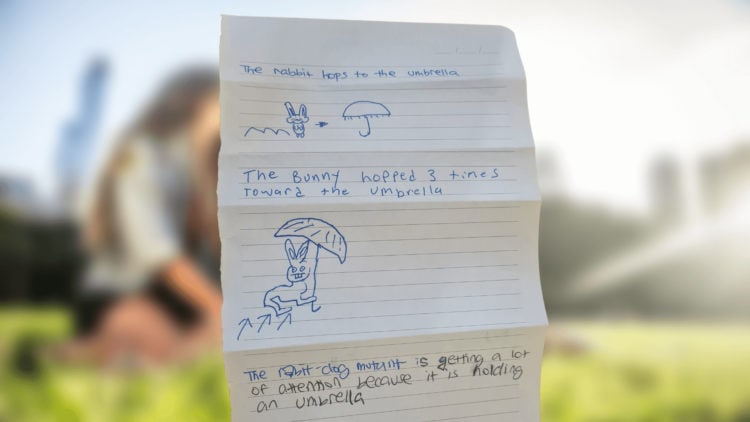 The rabbit hops to the umbrella
The Bunny hopped 3 times
Toward the umbrella
The rabit-dog mutant is getting a lot
of attention because it is holding
an umbrella